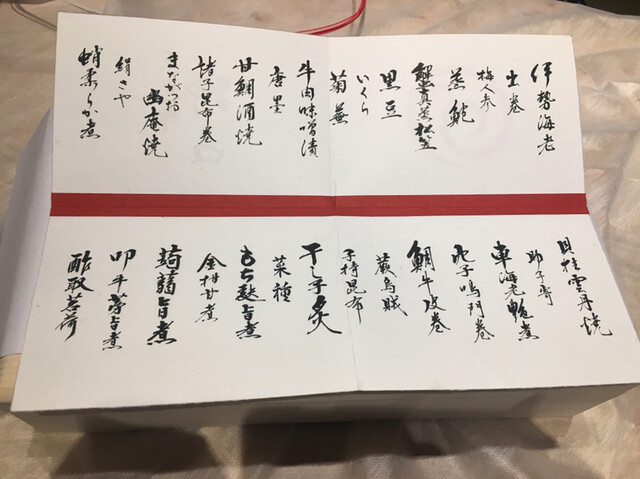 伊勢海老
出巻
梅人参
蒸鮑
蟹真蒸松笠
黒豆
いくら
菊蕪
牛肉味噌漬
唐墨
甘鯛酒焼
諸子昆布巻
まながつお幽庵焼
絹さや
蛸柔らか煮
貝柱雲丹焼
助子寄
車海老艶煮
穴子鳴門巻
鯛牛皮巻
蕨烏賊
子持昆布
干し子炙
菜種
もち麩旨煮
金柑甘煮
蒟蒻旨煮
叩牛蒡旨煮
酢取茗荷